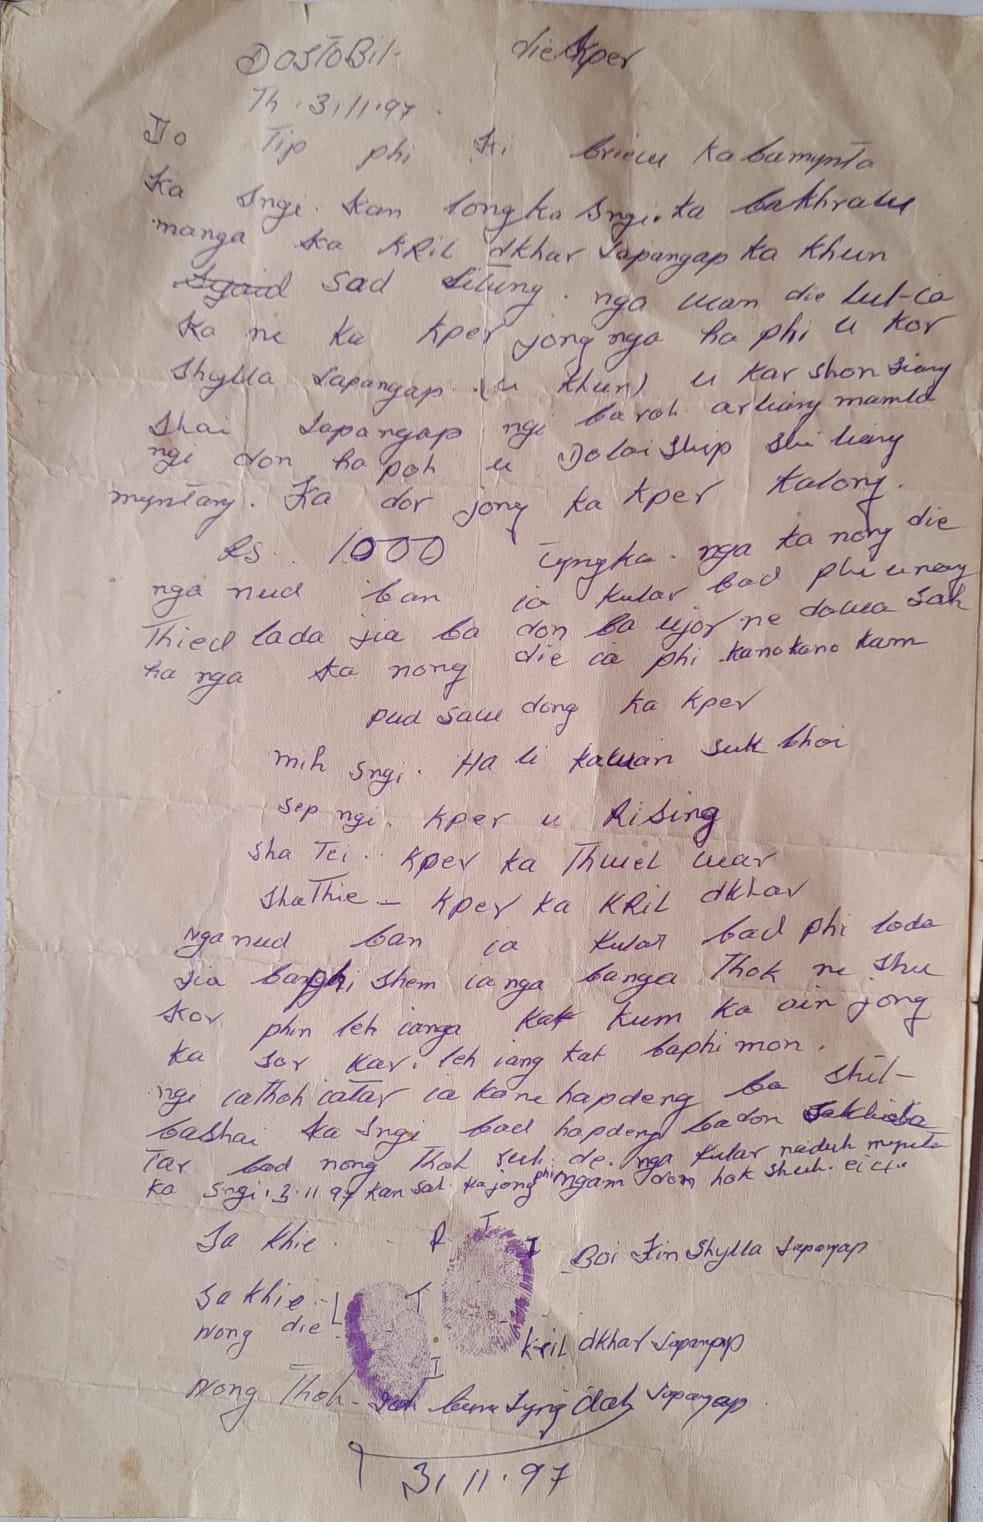 DOSTOBIL- die kper
Th. 3.11.97.
To Tip phi ki briew ka bamynta
Ka sngi. kan long ka sngi. ka bakhraw
manga ka KRIL dkhar Sapangap ka khun
Sad Litung. nga wan die lut-ia
ka ne ka kper jong nga ha phi u kor
Shylla Sapangap (u khun) u kar shon
Shai Sapangap ngi baroh arliang mamla
ngi don ha poh u Doloi Ship shi liang
myntang. Ka dor jong ka kper kalong.
RS. 1000 tyngka. nga ka nong die
nga nud ban ia kular bad phi unong
Thied lada jia ba don ba ujor ne dawa
ha nga ka nong die ia phi kanokano kam
pud saw dong ka kper
mih sngi. Ha li kawan suk bhoi
sep ngi. kper u Rising
sha Tei.. kper ka Thwel war
sha Thie - kper ka KRIL dkhar
nga nud ban ia kular bad phi lada
jia baphi shem ia nga banga Thok ne shu
kor phin leh ianga kat kum ka ain jong
ka sor kar. leh iang kat baphi mon.
ngi iathoh iatar ia kane hapdeng ba shit-
bashai ka sngi bad hapdeng badon sakhi
Tar bad nong Thoh ruh de. nga kular naduh mynta
ka sngi. 3.11.97 kan sah ka jong phi ngam don hok shuh.
Sa khie. R T I Boi Kin Shylla Sapangap
Sa khie.- L T
nong die- I kril dkhar Sapangap
Nong Thoh- Sapangap
3.11.97